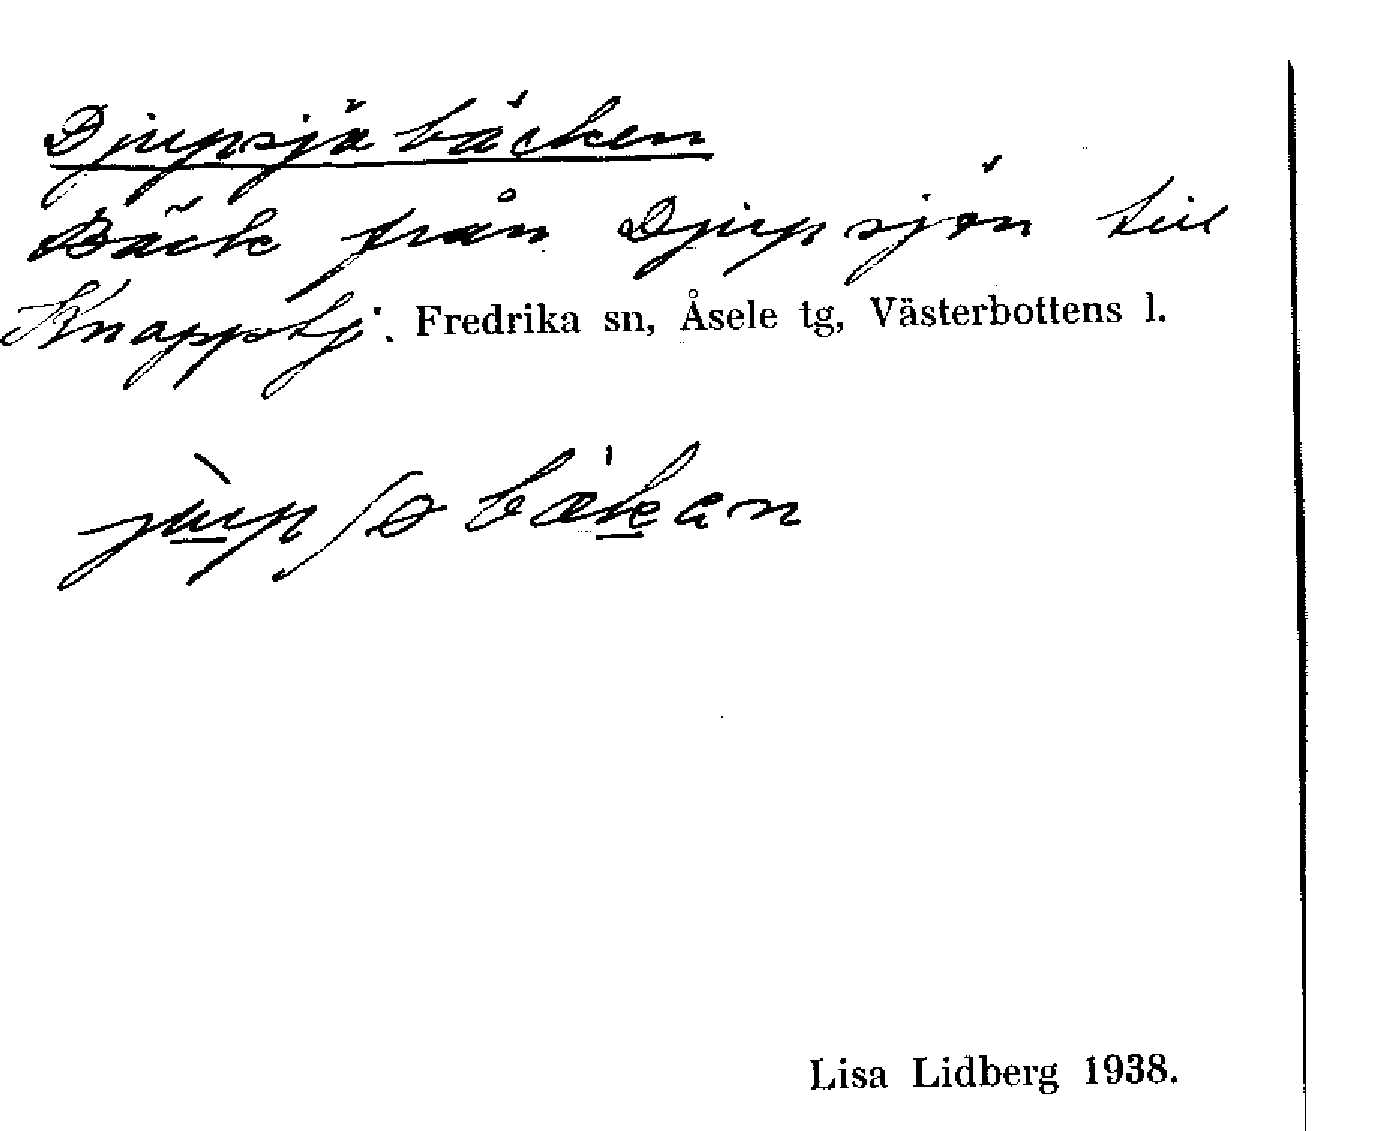 Djupsjöbäcken
Bäck från Djupsjön till
Knapptj. Fredrika sn, Åsele tg, Västerbottens l.
jùpʃøbækan
Lisa Lidberg 1938.